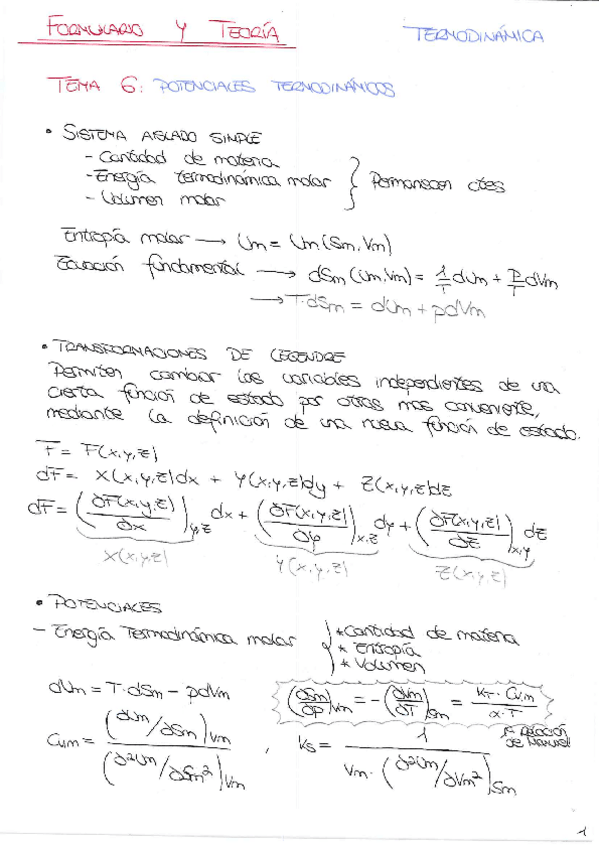 FORMULARIO Y TEORÍA
TERMODINÁMICA
TEMA 6: POTENCIALES TERMODINÁMICOS
• SISTEMA AISLADO SIMPLE
- Cantidad de materia
- Energía termodinámica molar } Permanecen ctes
- Volumen molar
Entropía molar → Um = Um(Sm,Vm)
Ecuación fundamental → dSm(Um,Vm) = 1/T dUm + P/T dVm
→ T·dSm = dUm + pdVm
• TRANSFORMACIONES DE LEGENDRE
Permiten cambiar las variables independientes de una
cierta función de estado por otras mas conveniente,
mediante la definición de una nueva función de estado.
F = F(x,y,z)
dF = X(x,y,z)dx + Y(x,y,z)dy + Z(x,y,z)dz
dF = (∂F(x,y,z)/∂x)y,z dx + (∂F(x,y,z)/∂y)x,z dy + (∂F(x,y,z)/∂z)x,y dz
X(x,y,z) Y(x,y,z) Z(x,y,z)
• POTENCIALES
- Energía Termodinámica molar
* Cantidad de materia
* Entropía
* Volumen
dUm = T·dSm - pdVm
(∂Sm/∂p)Vm = -(∂Vm/∂T)Sm = KT·CV,m/α·T
1ª RELACIÓN
DE MAXWELL
CV,m = (∂Um/∂Sm)Vm / (∂²Um/∂Sm²)Vm , KS = 1 / Vm·(∂²Um/∂Vm²)Sm
1